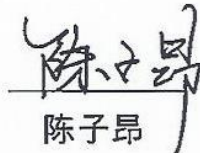 陈子昂
陈子昂